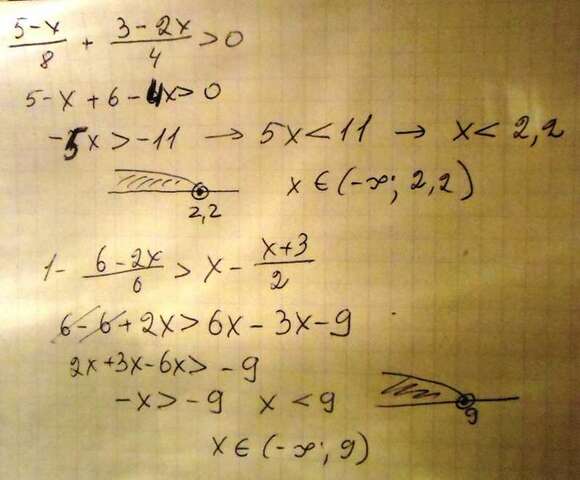 (5-x)/8 + (3-2x)/4 > 0
5-x+6-4x>0
-5x>-11 → 5x<11 → x< 2,2
2,2 x ∈ (-∞; 2,2)
1- (6-2x)/6 > x- (x+3)/2
6-6+2x>6x-3x-9
2x+3x-6x>-9
-x>-9 x <9
9
x ∈ (-∞; 9)